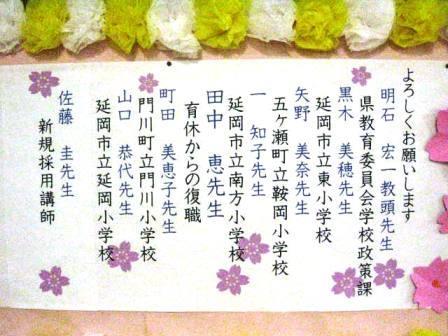 よろしくお願いします
明石 宏一教頭先生
県教育委員会学校政策課
黒木 美穂先生
延岡市立東小学校
矢野 美奈先生
五ヶ瀬町立鞍岡小学校
一 知子先生
延岡市立南方小学校
田中 恵先生
育休からの復職
町田 美恵子先生
門川町立門川小学校
山口 恭代先生
延岡市立延岡小学校
佐藤 圭先生
新規採用講師